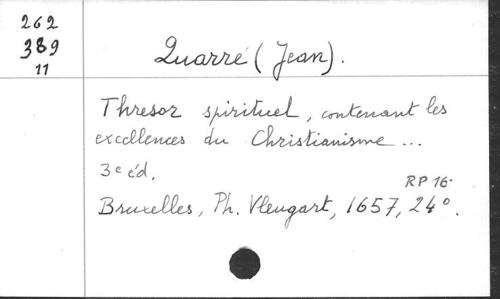 262
389
11
Quarré (Jean).
Thresor spirituel, contenant les
excellences du Christianisme ...
3e éd.
RP 16.
Bruxelles, Ph. Vleugart, 1657, 24°.